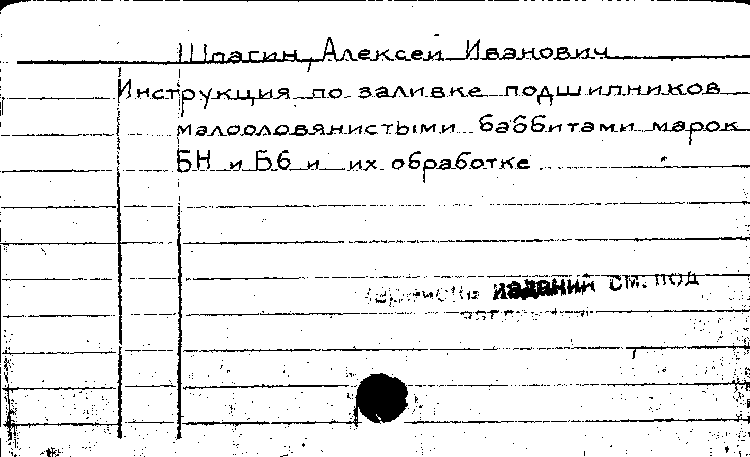 Шпагин, Алексей Иванович
Инструкция по заливке подшипников
малооловянистыми баббитами марок
БН и Б6 и их обработке
изданий см. под